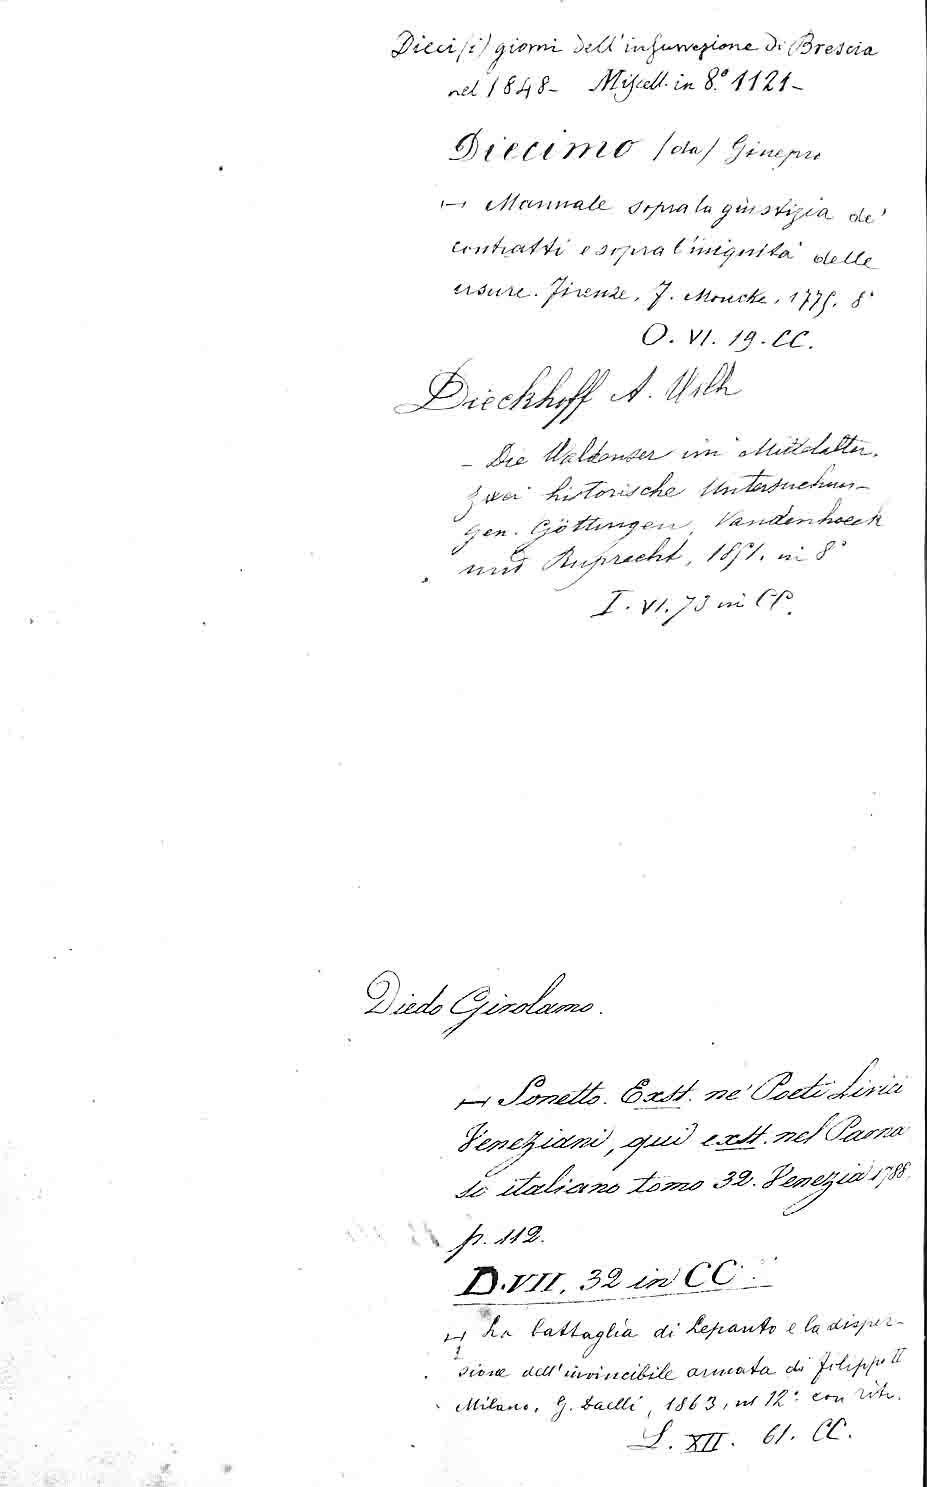 Dieci (i) giorni dell'insurrezione di Brescia
nel 1848 – Miscell. in 8.° 1121 –
Diecimo (da) Ginepro
— Mannale sopra la giustizia de'
contratti e sopra l'iniquità delle
usure. Firenze, F. Moucke, 1775. 8°
O. VI. 19. CC.
Dieckhoff A. Wilh
– Die Waldenser im Mittelalter.
Zwei historische Untersuchun-
gen. Göttingen, Vandenhoeck
und Ruprecht, 1851. in 8°
I. VI. 73 in CC.
Diedo Girolamo.
— Sonetto. Exst. ne' Poeti Lirici
Veneziani, qui exst. nel Parna
so italiano tomo 32. Venezia 1788.
p. 112.
D. VII. 32 in CC.
— La battaglia di Lepanto e la disper-
sione dell'invincibile armata di Filippo II
Milano, G. Daelli, 1863, in 12° con ritr.
L. XII. 61. CC.